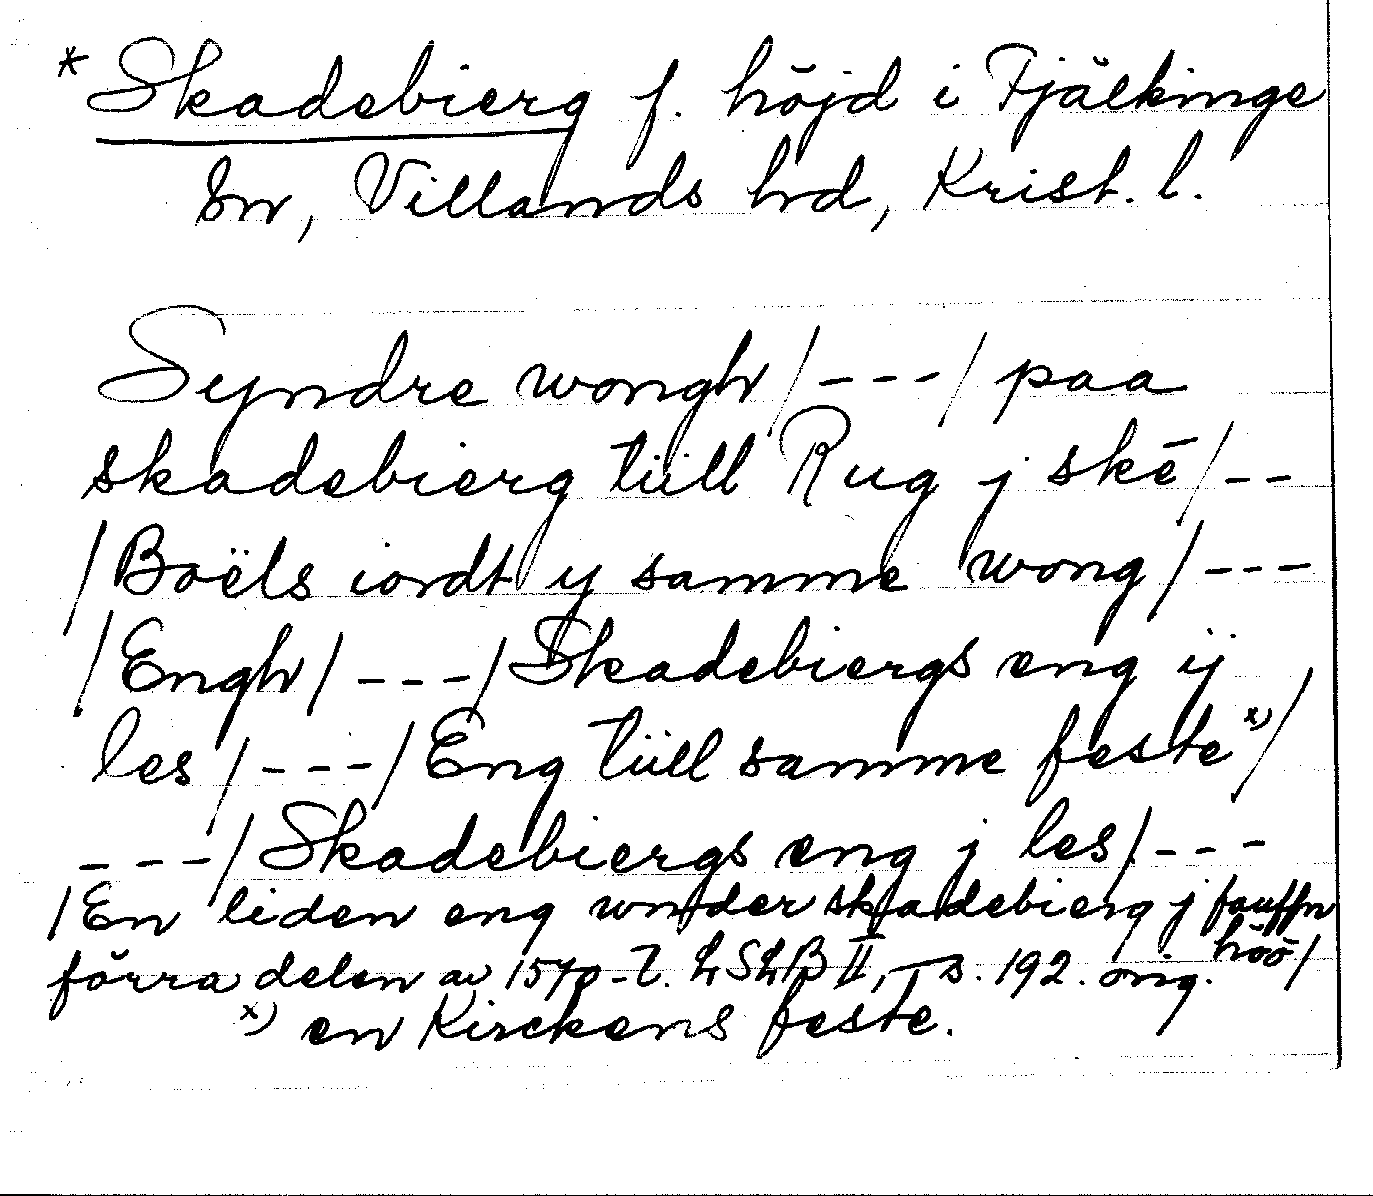 * Skadebierg f. höjd i Fjälkinge
sn, Villands hd, Krist. l.
Syndre wongh/---/ paa
skadebierg tüll Rug j skē/--
/Boëls iordt y samme wong/---
/Engh/---/Skadebiergs eng ÿ
les/---/Eng tüll samme feste x)/
---/Skadebiergs eng j les/---
/En liden eng wnder skadebierg j fauffn
höö/
förra delen av 1570-t. LSLB II, s. 192. orig.
x) en Kirckens feste.